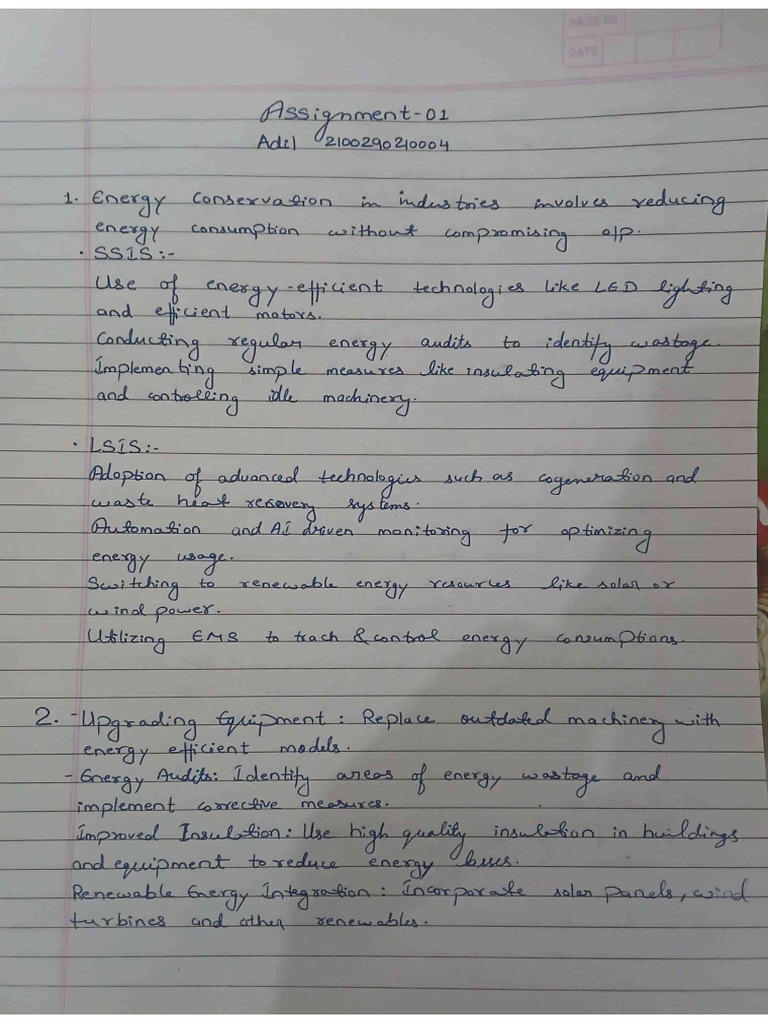 PAGE NO
DATE
Assignment-01
Adil 2100290210004
1. Energy Conservation in industries involves reducing
energy consumption without compromising o/p.
· SSIS:-
Use of energy-efficient technologies like LED lighting
and efficient motors.
Conducting regular energy audits to identify wastage.
Implementing simple measures like insulating equipment
and controlling idle machinery.
· LSIS:-
Adoption of advanced technologies such as cogeneration and
waste heat recovery systems.
Automation and AI driven monitoring for optimizing
energy usage.
Switching to renewable energy resources like solar or
wind power.
Utilizing EMS to trach & control energy consumptions.
2. - Upgrading Equipment : Replace outdated machinery with
energy efficient models.
- Energy Audits: Identify areas of energy wastage and
implement corrective measures.
Improved Insulation: Use high quality insulation in buildings
and equipment to reduce energy losses.
Renewable Energy Integration : Incorporate solar panels, wind
turbines and other renewables.